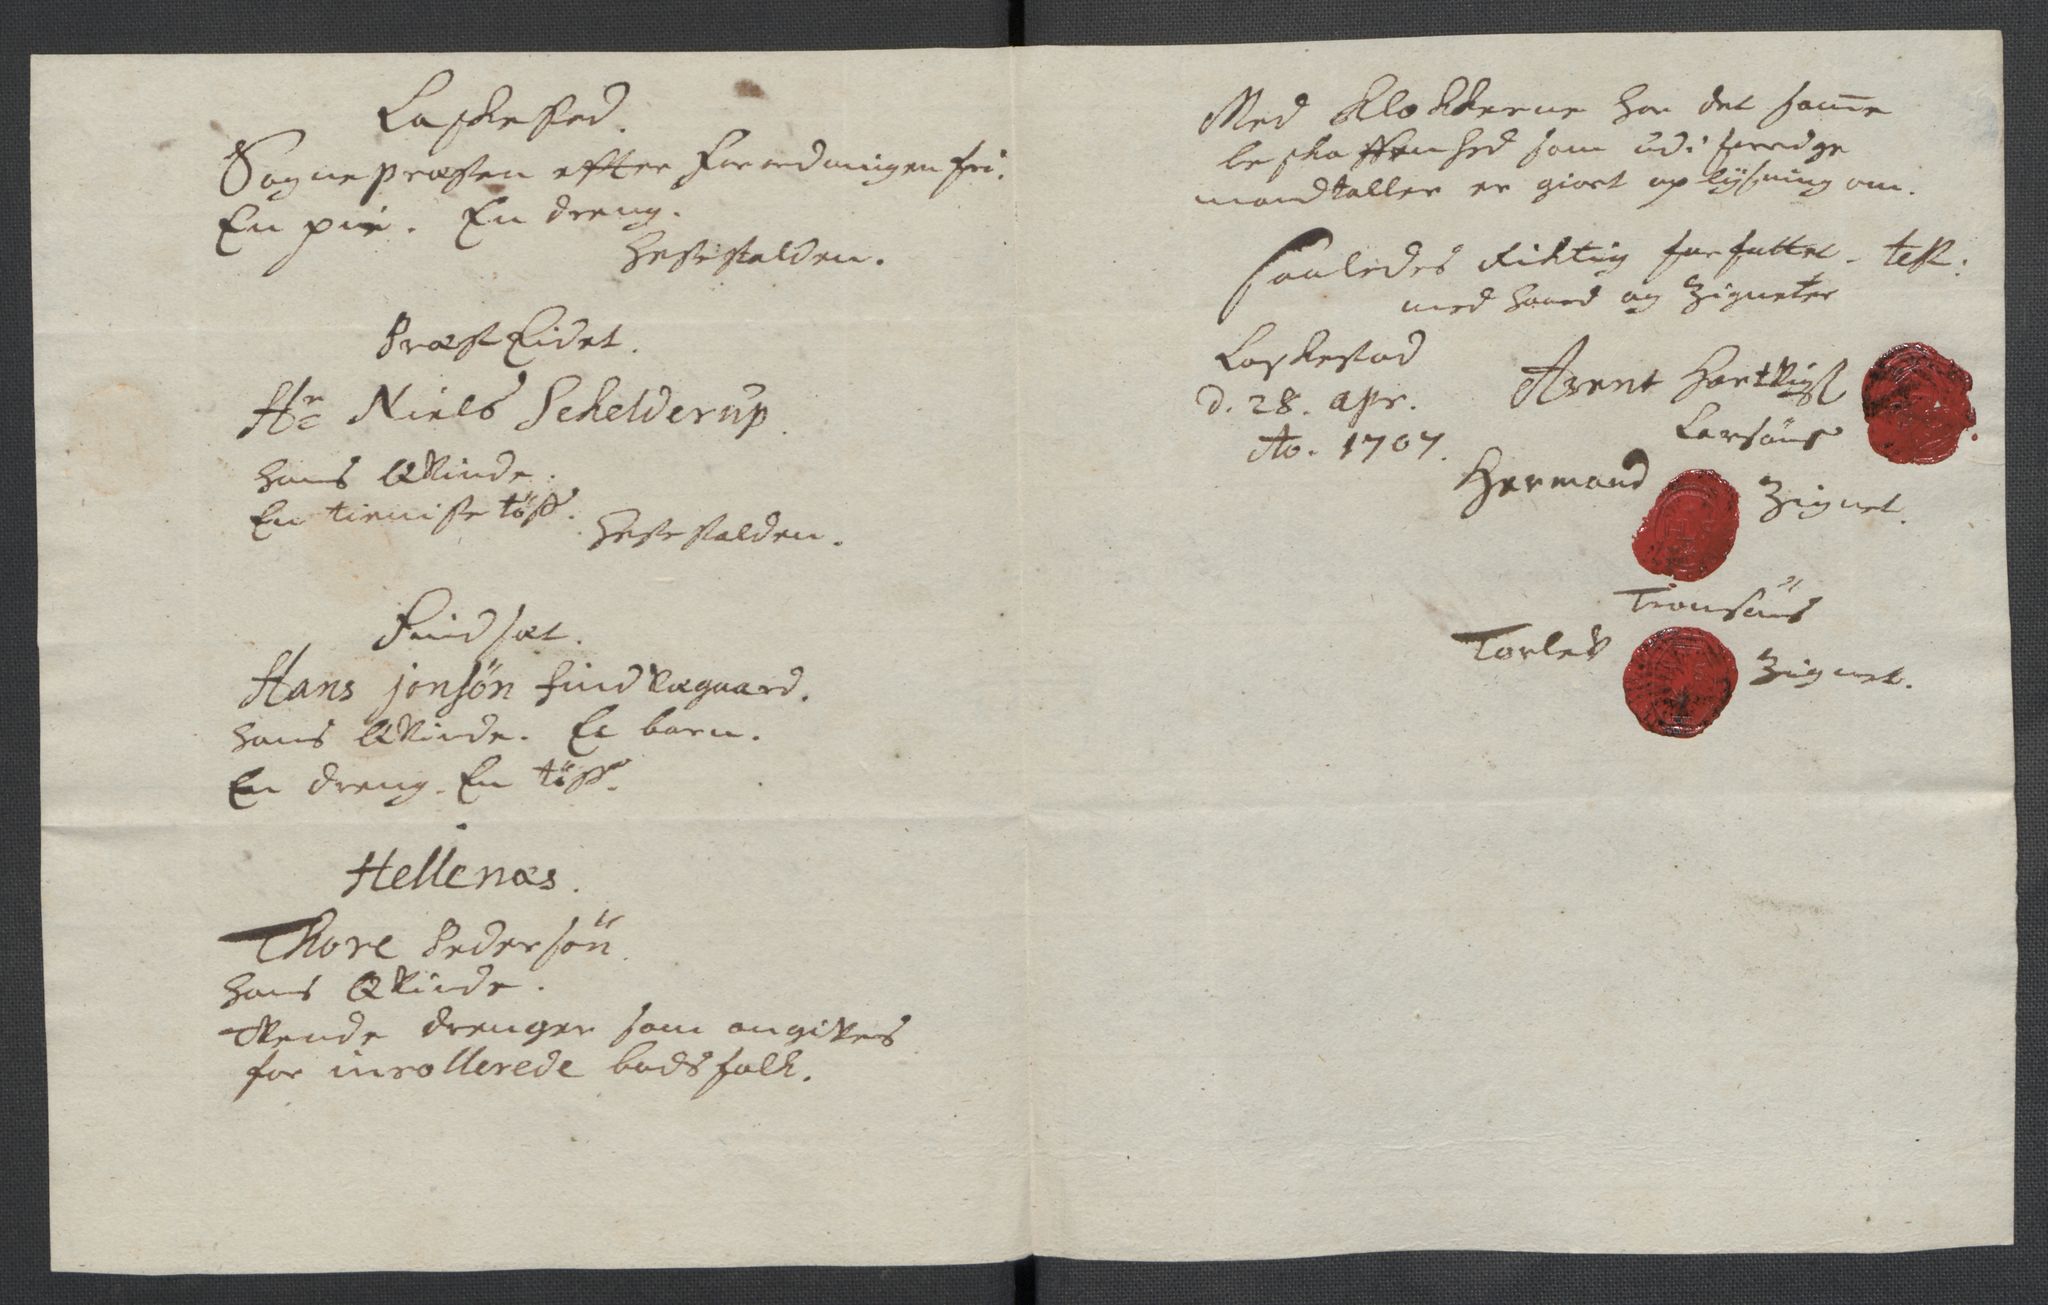 Laskestad.
Sognepræsten efter Forordningen fri.
En pie. En dreng.
Præst Eidet.
Hr Niels Schelderup.
hans Qvinde.
En tieniste töss.
Findset.
Hans jonsön
hans Qvinde. Et barn.
En dreng. En töss.
Hellenæs.
Thore Pedersön
hans Qvinde.
Tvende drenger som angives
for inrollerede baadsfolk.
Med Klokkerne har det samme
beskaffenhed som udi forrige
mandtaller er giort oplysning om.
Saaledes Riktig forfattet. test:
med haand og Zigneter
Laskestad
d. 28. apr.
Ao. 1707.
Arent Hartvigs
Larsöns
Hermand Zignet.
Tronsöns
Torlev Zignet.